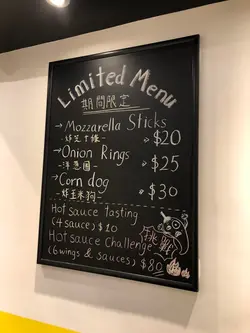 Limited Menu
期間限定
→Mozzarella Sticks
-炸芝士條- $20
→Onion Rings
-洋葱圈- $25
→Corn dog
-炸玉米狗- $30
Hot sauce tasting
(4 sauces) $10
Hot sauce Challenge
(6 wings & sauces) $80
挑戰